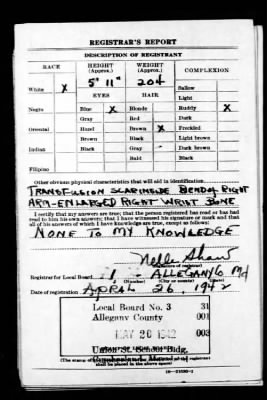 REGISTRAR'S REPORT
DESCRIPTION OF REGISTRANT
RACE HEIGHT (Approx.) WEIGHT (Approx.) COMPLEXION
5' 11" 204
EYES HAIR
Sallow
White X
Light
Negro Blue X Blonde Ruddy X
Gray Red Dark
Oriental Hazel Brown X Freckled
Brown Black Light brown
Indian Black Gray Dark brown
Bald Black
Filipino
Other obvious physical characteristics that will aid in identification
TRANSFUSION SCAR INSIDE BEND OF RIGHT
ARM-ENLARGED RIGHT WRIST BONE
I certify that my answers are true; that the person registered has read or has had
read to him his own answers; that I have witnessed his signature or mark and that
all of his answers of which I have knowledge are true, except as follows:
NONE TO MY KNOWLEDGE
Nelle Shaw
(Signature of registrar)
Registrar for Local Board 1 ALLEGANY Md
Date of registration APRIL 26, 1942
Local Board No. 3 31
Allegany County 001
MAY 20 1942 003
Union St. School Bldg.
Cumberland, Maryland
(The stamp of
shall be placed in the above space)